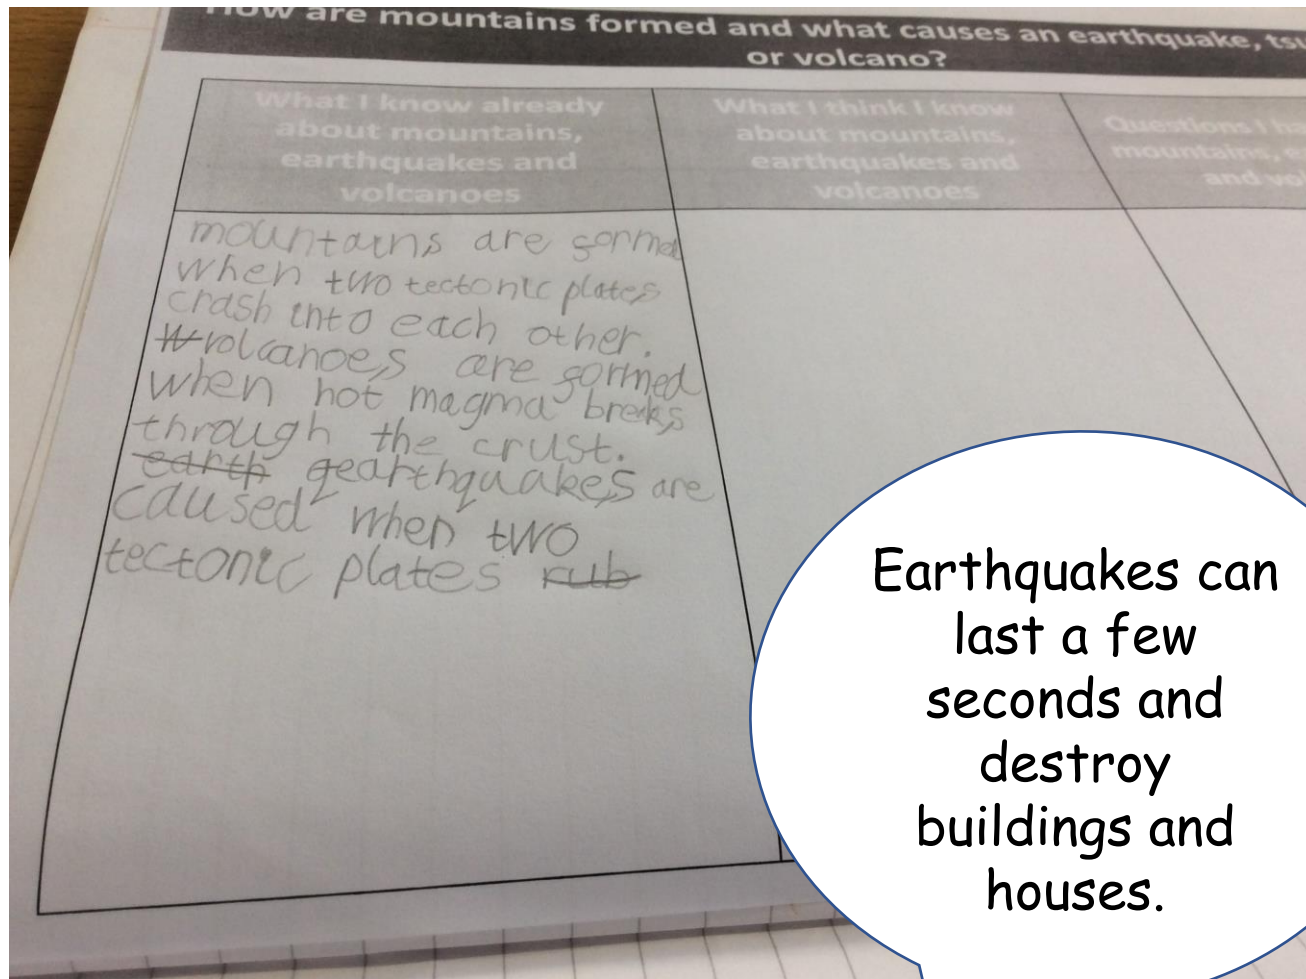 How are mountains formed and what causes an earthquake, tsu
or volcano?
What I know already
about mountains,
earthquakes and
volcanoes
What I think I know
about mountains,
earthquakes and
volcanoes
Questions I ha
mountains, e
and vol
mountains are formed
when two tectonic plates
crash into each other.
volcanoes are formed
when hot magma breaks
through the crust.
earth earthquakes are
caused when two
tectonic plates rub
Earthquakes can
last a few
seconds and
destroy
buildings and
houses.